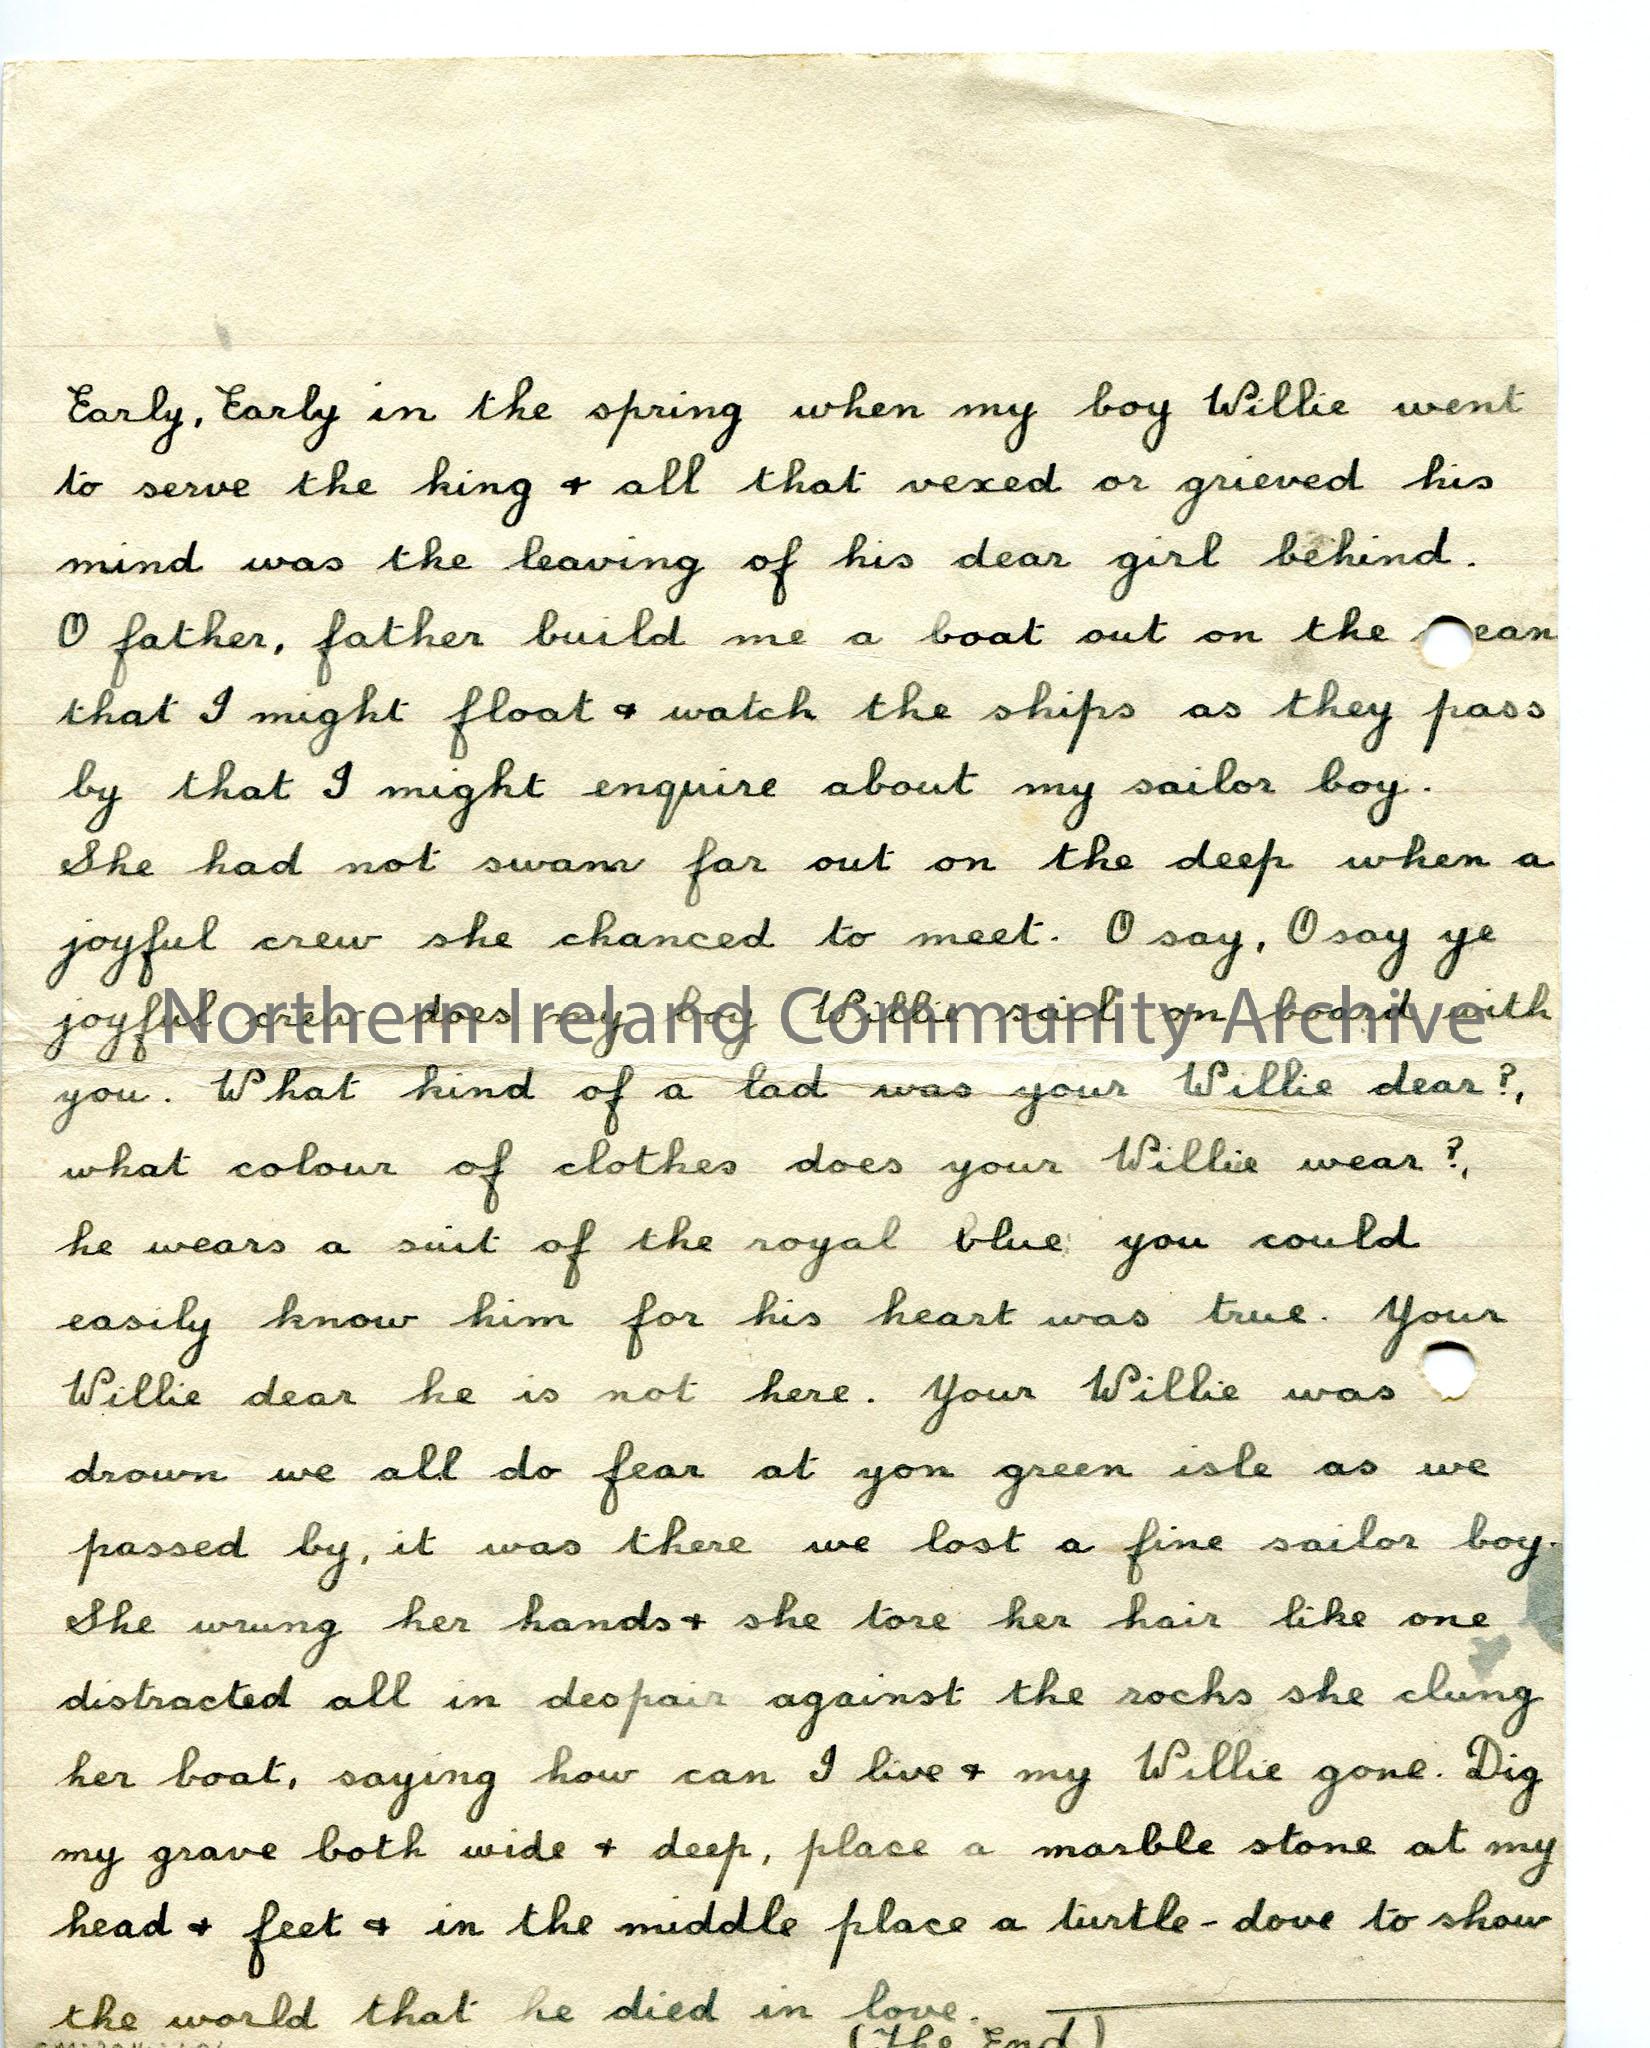 Early, Early in the spring when my boy Willie went
to serve the king + all that vexed or grieved his
mind was the leaving of his dear girl behind.
O father, father build me a boat out on the ean
that I might float + watch the ships as they pass
by that I might enquire about my sailor boy.
She had not swam far out on the deep when a
joyful crew she chanced to meet. O say, O say ye
joyful crew does my boy Willie sail on board with
Northern Ireland Community Archive
you. What kind of a lad was your Willie dear?,
what colour of clothes does your Willie wear?,
he wears a suit of the royal blue you could
easily know him for his heart was true. Your
Willie dear he is not here. Your Willie was
drown we all do fear at yon green isle as we
passed by, it was there we lost a fine sailor boy.
She wrung her hands + she tore her hair like one
distracted all in despair against the rocks she clung
her boat, saying how can I live + my Willie gone. Dig
my grave both wide + deep, place a marble stone at my
head + feet + in the middle place a turtle-dove to show
the world that he died in love.
(The End)